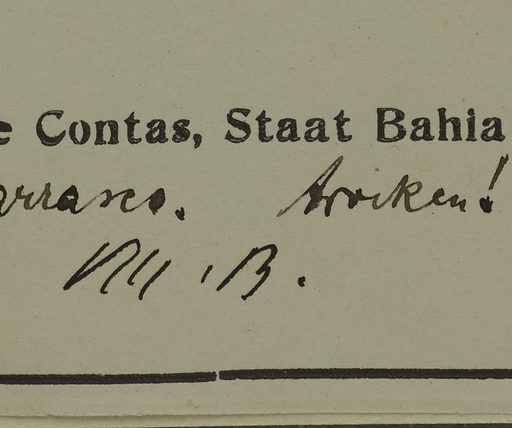 e Contas, Staat Bahia
arrasco. Aroiken!
M. B.